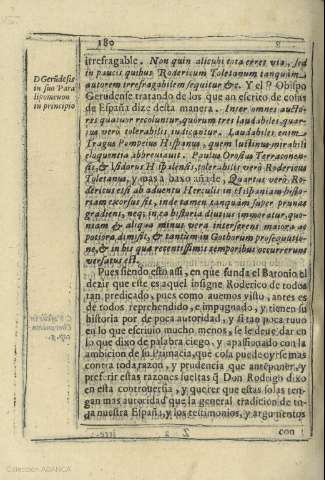 180
irrefragable. Non quin alicubi tota eres via, sed
in paucis quibus Rodericum Toletanum tanquam
autorem irrefragabilem sequitur &c. Y el Obispo
Gerundense tratando de los que an escrito de cosas
de España dize desta manera. Inter omnes aucto-
res quatuor recoluntur, quorum tres laudabiles, quar-
tus verò tolerabilis iudicantur. Laudabiles enim
Tragus Pompeius Hispanus, quem Iustinus mirabili
eloquentia abbreuiauit. Paulus Orosius Terraconen-
sis, & Isidorus Hispalensis, tolerabilis verò Rodericus
Toletanus, y mas a baxo añade. Quartus verò Ro-
dericus est: ab aduentu Herculis in Hispaniam histo-
riam exorsus sit, inde tamen tanquam super prunas
gradiens, neq; in ea historia diutius immoratur, quo-
niam & aliqua minus vera inserserens maiora ac
potiora dimisit, & tantum in Gothorum prosequutio-
ne, & in his quæ recentissimis temporibus occurrerunt
versatus est.
Pues siendo esto assi, en que funda el Baronio el
dezir que este es aquel insigne Roderico de todos
tan predicado, pues como auemos visto, antes es
de todos reprehendido, e impugnado, y tienen su
historia por de poca autoridad, y si tan poca tuuo
en lo que escriuio mucho menos, se le deue dar en
lo que dixo de palabra ciego, y apassionado con la
ambicion de su Primacia, que cosa puede oyrse mas
contra toda razon, y prudencia que anteponer, y
preferir estas razones sueltas q̃ Don Rodrigo dixo
en esta controuersia, y querer que estas solas ten-
gan mas autoridad que la general tradicion de to-
da nuestra España, y los testimonios, y argumentos
con
D Gerũdẽsis
in suo Para
lipomenon
in principio
Colección ADANCA